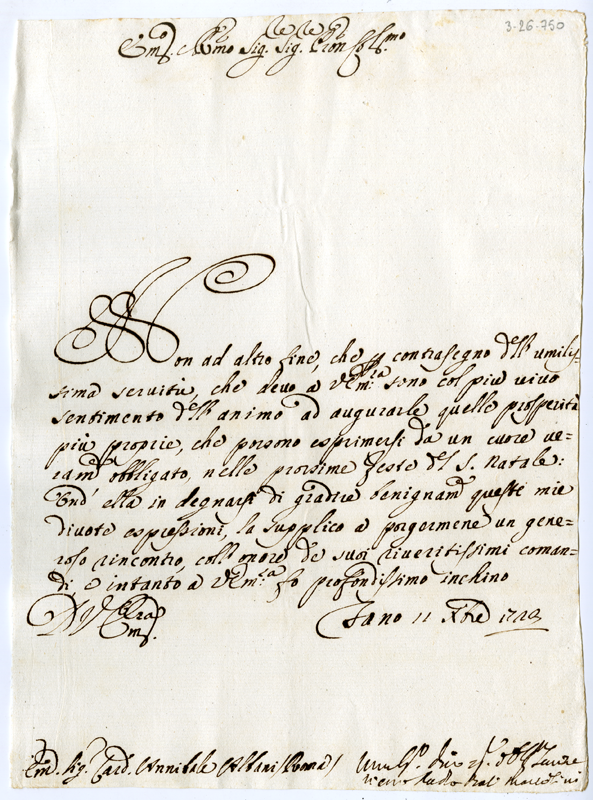 3-26-750
Em.º Rmo Sig. Sig. Pron Col.mo
Non ad altro fine, che p contrasegno dell' umilis-
sima servitù, che devo a V Em.ª sono col più vivo
sentimento dell' animo ad augurarle quelle prosperità
più proprie, che possono esprimersi da un cuore ve-
ram.e obbligato, nelle prossime feste del S. Natale:
Ond' ella in degnarsi di gradire benignam.e queste mie
divote espressioni, la supplico a porgermene un gene-
roso rincontro, coll' onore de suoi riveritissimi coman-
di, e intanto a V Em.ª fo profondissimo inchino
Di V Em.
Fano 11 Xbre
Em.º Sig. Card. Annibale Albani / Roma /